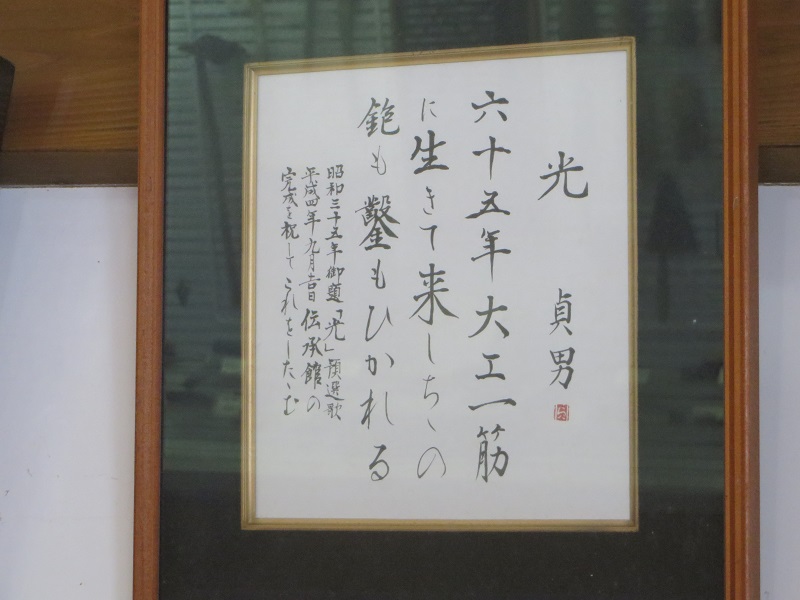 光 貞男
六十五年大工一筋
に生きて来しちゝの
鉋も鑿もひかれる
昭和三十五年御題「光」預選歌
平成四年九月吉日伝承館の
完成を祝してこれをしたゝむ